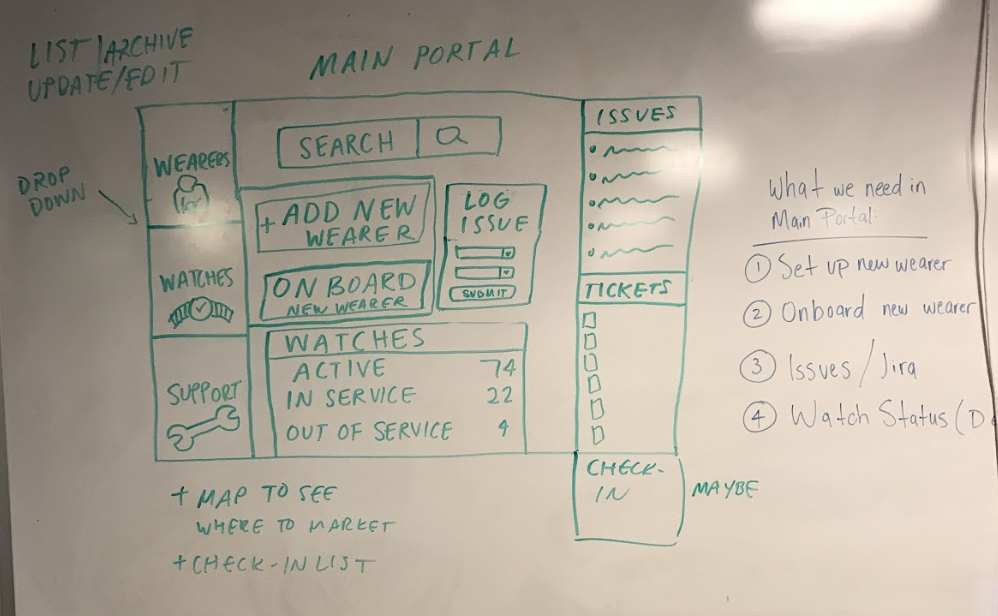 LIST/ARCHIVE
UPDATE/EDIT
MAIN PORTAL
DROP
DOWN
WEARERS
WATCHES
SUPPORT
SEARCH
+ ADD NEW
WEARER
ON BOARD
NEW WEARER
LOG
ISSUE
SUBMIT
WATCHES
ACTIVE 74
IN SERVICE 22
OUT OF SERVICE 4
ISSUES
TICKETS
CHECK-
IN
MAYBE
+ MAP TO SEE
WHERE TO MARKET
+ CHECK-IN LIST
What we need in
Main Portal:
1 Set up new wearer
2 Onboard new wearer
3 Issues/Jira
4 Watch Status (D